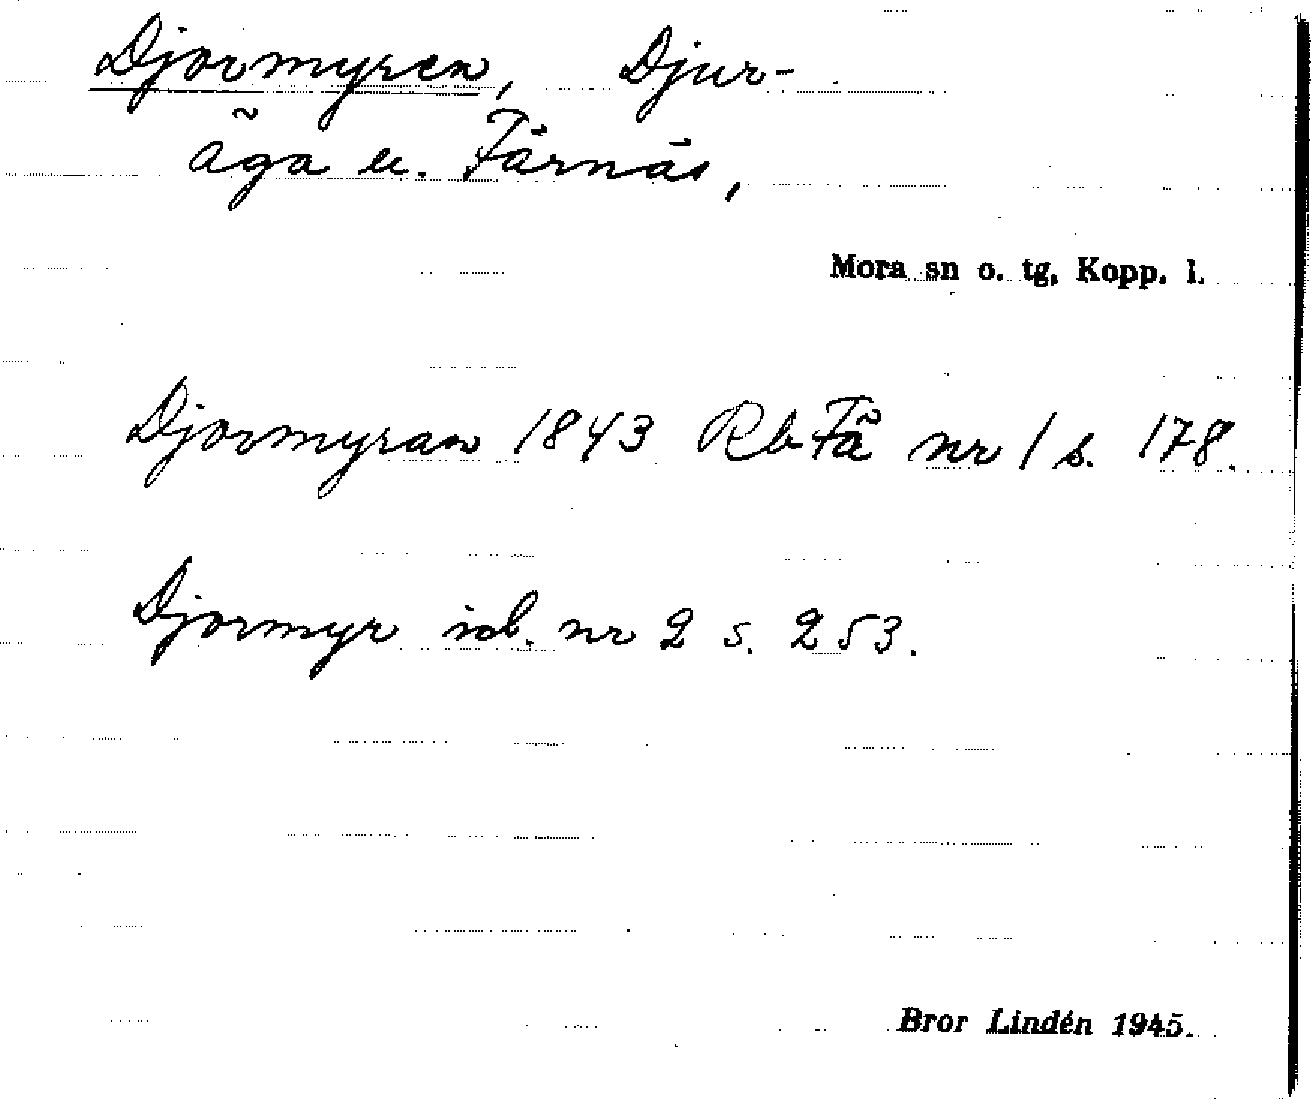 Djormyren, Djur-
äga u. Färnäs,
Mora sn o. tg, Kopp. l.
Djormyran 1843 Rb Fä nr 1 s. 178.
Djormyr ib. nr 2 s. 253.
Bror Lindén 1945.